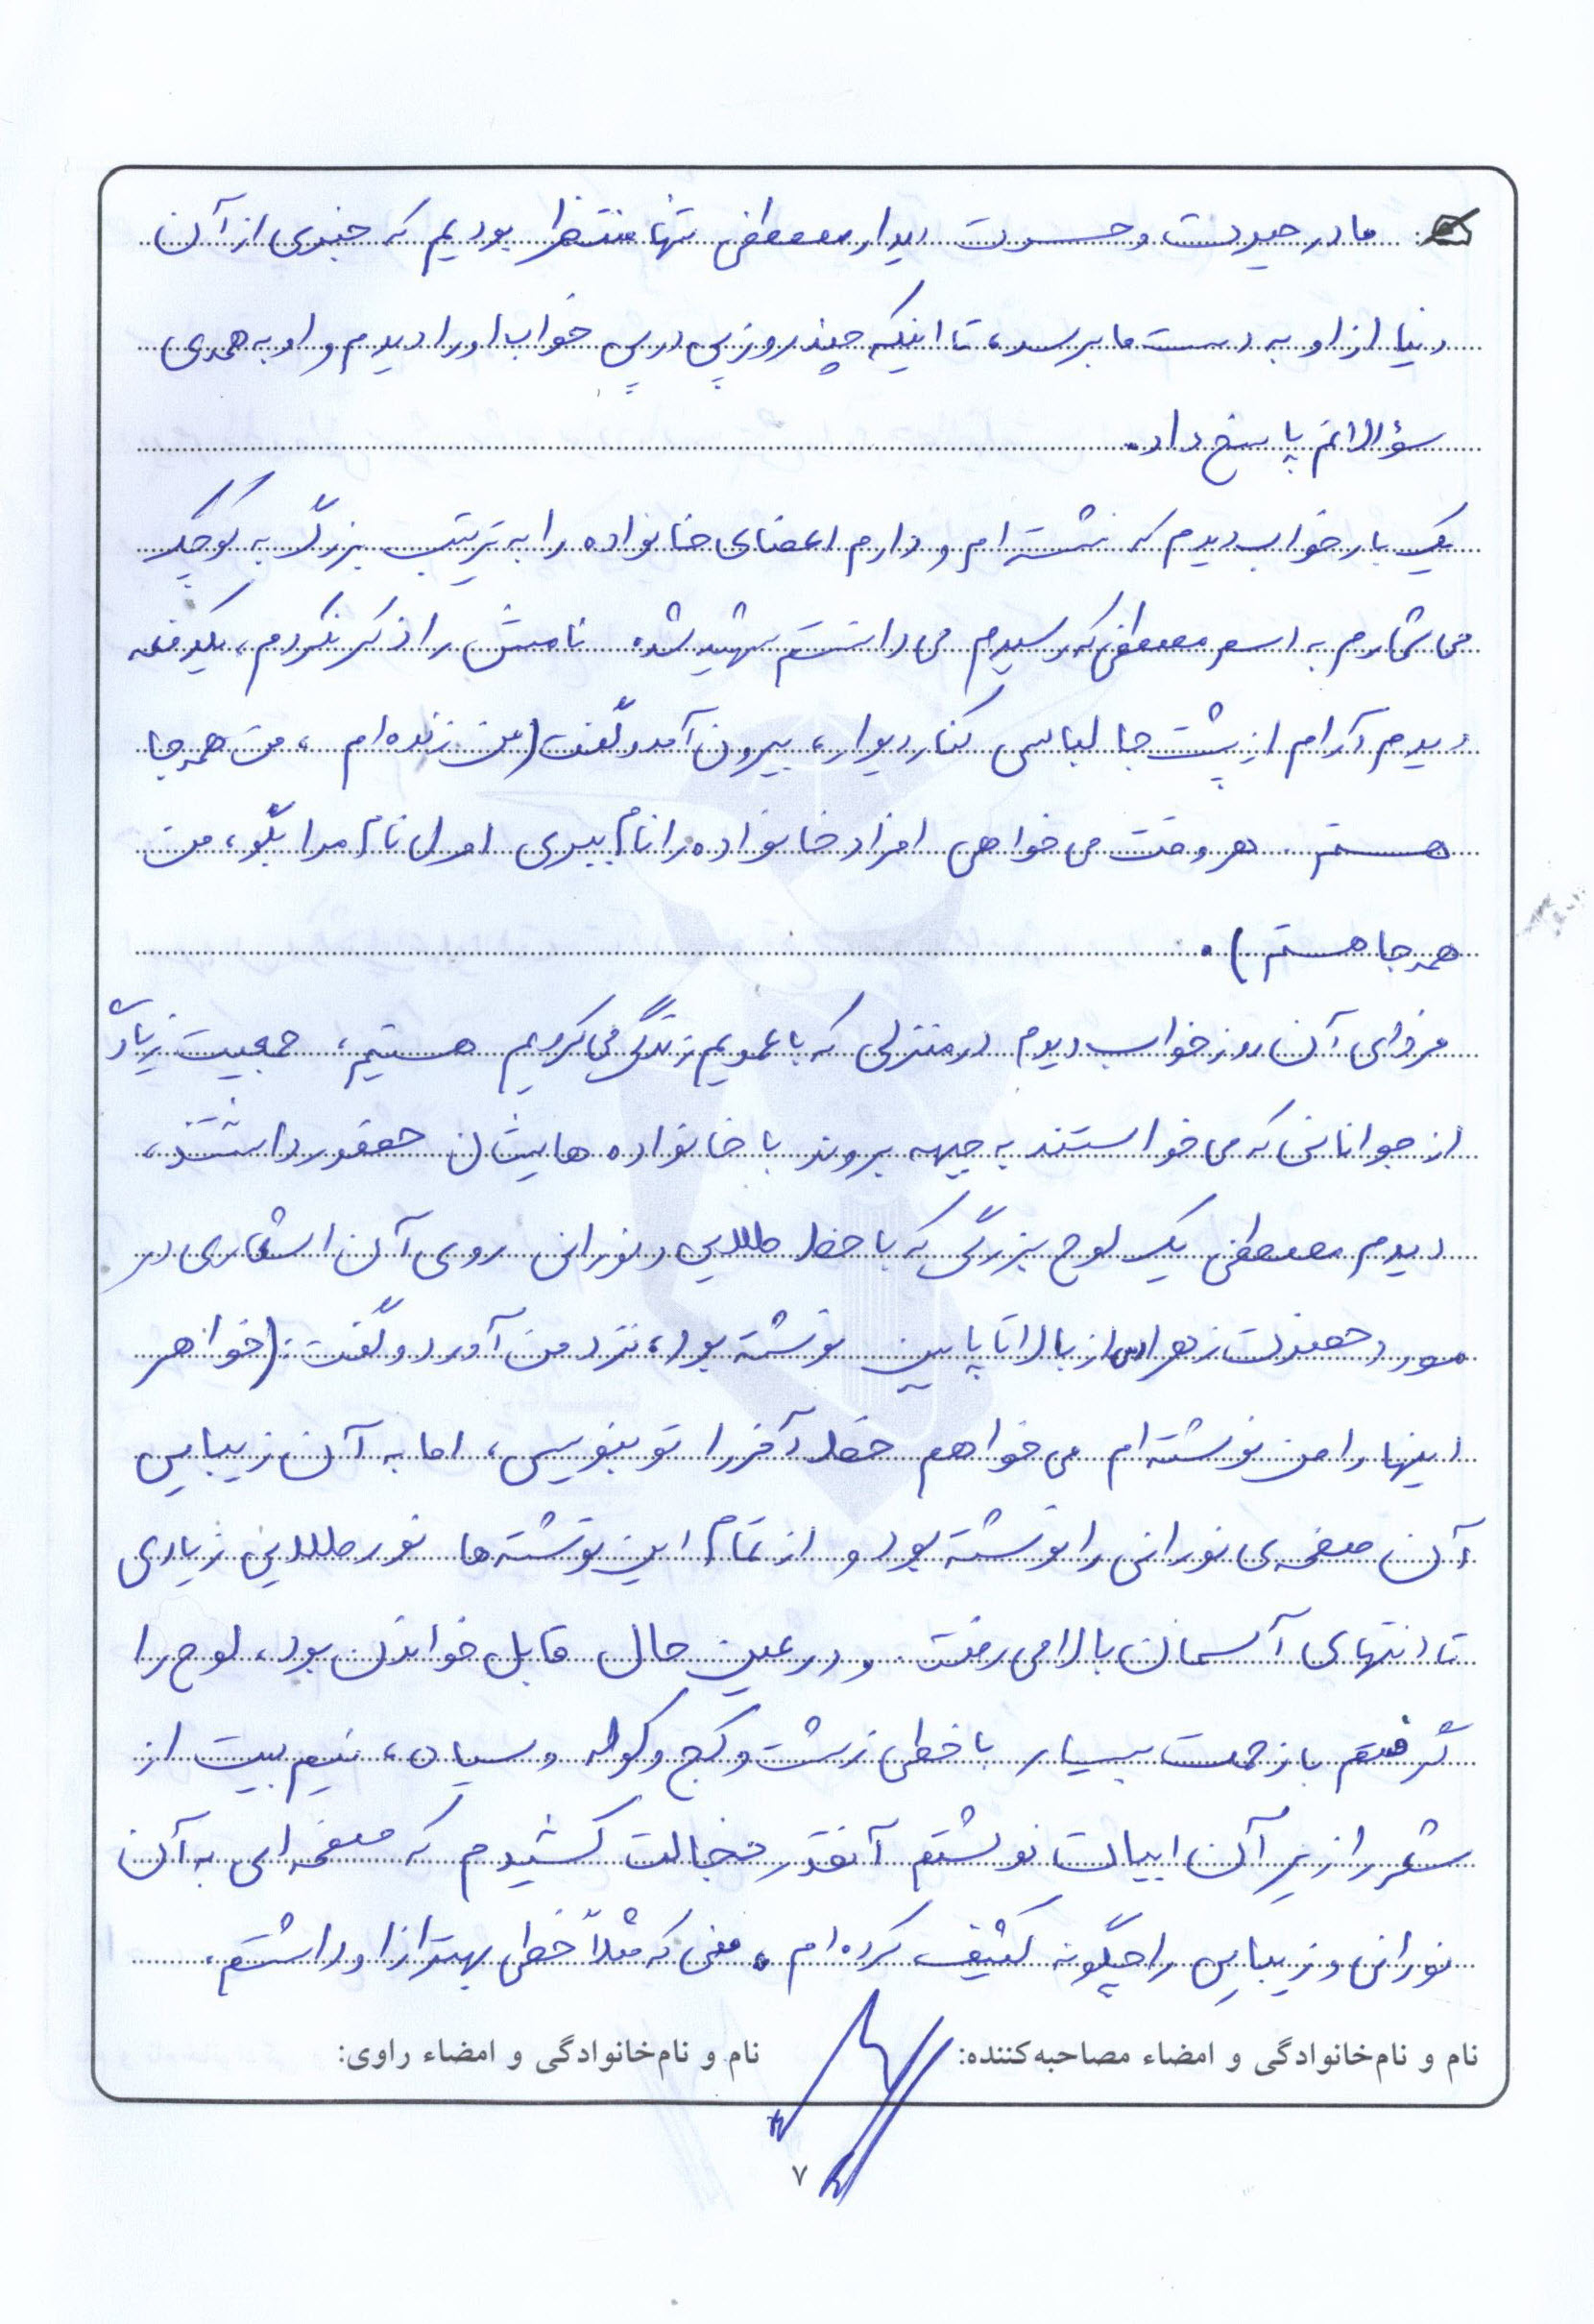 ما در حیرت و حسرت دیدار مصطفی تنها منتظر بودیم که خبری از آن
دنیا از او به دست ما برسد، تا اینکه چند روز پی در پی خواب او را دیدم و او به همه‌ی
سؤالاتم پاسخ داد.
یک بار خواب دیدم که نشسته‌ام و دارم اعضای خانواده را به ترتیب بزرگ به کوچک
می‌شمارم به اسم مصطفی که رسیدم می‌دانستم شهید شده نامش را ذکر نکردم، یکدفعه
دیدم آرام از پشت جا لباسی کنار دیوار، بیرون آمد و گفت (من زنده‌ام، من همه جا
هستم. هر وقت می‌خواهی افراد خانواده را نام ببری اول نام مرا بگو، من
همه جا هستم).
فردای آن روز خواب دیدم در منزلی که با عمویم زندگی می‌کردیم هستیم، جمعیت زیادی
از جوانانی که می‌خواستند به جبهه بروند با خانواده‌هایشان حضور داشتند،
دیدم مصطفی یک لوح بزرگی که با خط طلایی و نورانی روی آن اشعاری در
مورد حضرت زهرا (س) از بالا تا پایین نوشته بود، نزد من آورد و گفت: (خواهر
اینها را من نوشته‌ام می‌خواهم خط آخر را تو بنویسی، اما به آن زیبایی
آن صفحه‌ی نورانی را نوشته بود و از تمام این نوشته‌ها نور طلایی زیادی
تا انتهای آسمان بالا می‌رفت. و در عین حال قابل خواندن بود، لوح را
گرفتم با زحمت بسیار با خطی زشت و کج و کوله و سیاه، نیم بیت از
شعر را زیر آن ابیات نوشتم آنقدر خجالت کشیدم که صفحه‌ای به آن
نورانی و زیبایی را چگونه کثیف کرده‌ام. منی که مثلاً خطی بهتر از او داشتم،
نام و نام‌خانوادگی و امضاء مصاحبه‌کننده: نام و نام‌خانوادگی و امضاء راوی:
۷